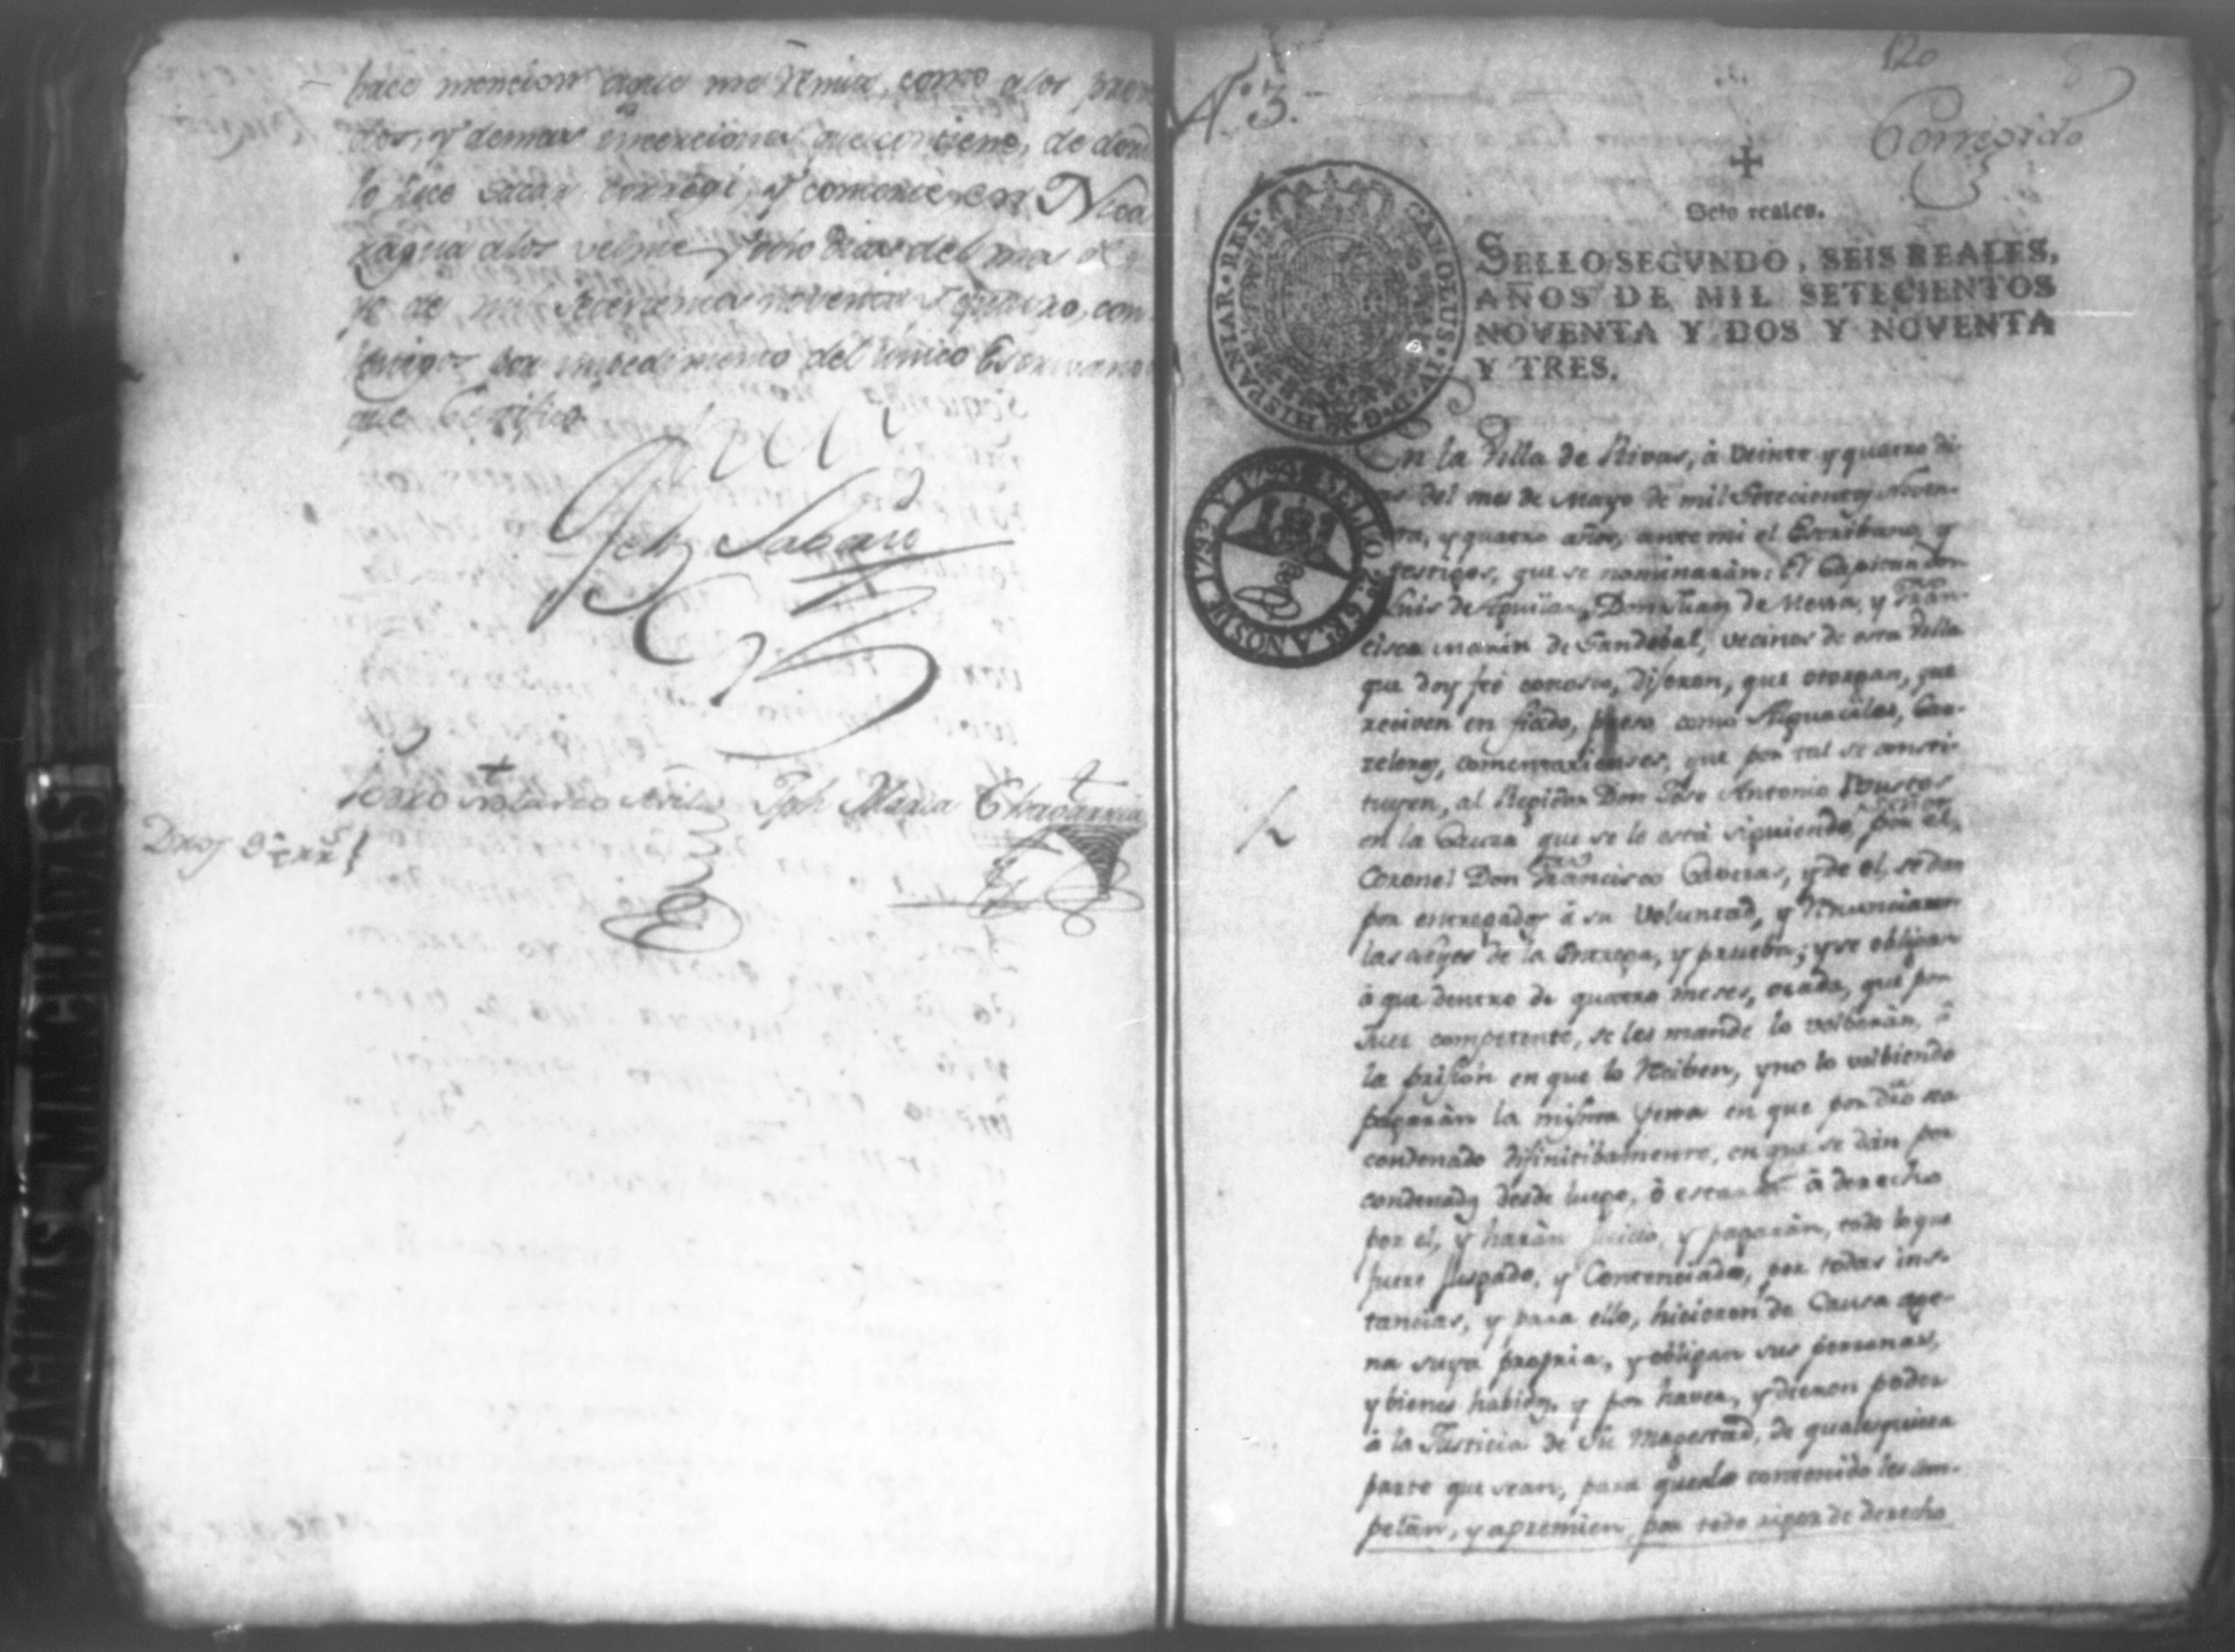 hace mencion aque me remito, como alos
y demas incerciones que contiene, de donde
lo hice sacar corregi, y comencé en Nica
ragua alos veinte y ocho dias del mes de
de mil setecientos noventa y quatro, con
testigos por impedimento del único Escrivano
que Certifico
Maria Chavarria
Dros
PAGINAS MANCHADAS
120
N.º 3.
Corregido
Seis reales.
SELLO SEGVNDO, SEIS REALES,
AÑOS DE MIL SETECIENTOS
NOVENTA Y DOS Y NOVENTA
Y TRES.
CAROLUS·IV·D·G·HISPANIAR·REX·
SELLO 2º 6 Rs AÑOS DE 179 Y 179
En la Villa de Rivas, à veinte y quatro di-
as del mes de Mayo de mil setecientos noven-
ta, y quatro años, ante mi el Escribano, y
testigos, que se nominaràn: El Capitan don
Luis de Aguilar, Don Juan de Mena, y Fran-
cisco Marin de Sandobal, vecinos de esta Villa
que doy feé conosco, dijeron, que otorgan, que
reciven en fiado, preso como Alguaciles, Car-
zeleros, comentarienses, que por tal se consti-
tuyen, al Regidor Don Jose Antonio Bustos
en la Causa que se le está siguiendo, por el señor
Coronel Don Francisco Caveras, y de el, se dan
por entregados â su voluntad, y renunciaron
las leyes de la entrega, y prueba; y se obligan
à que dentro de quatro meses, ò cada, que por
Juez competente, se les mande lo volberàn, â
la prision en que lo reciben, y no lo volbiendo
pagaràn la misma pena en que por dho sea
condenado difinitibamente, en que se dàn por
condenados desde luego, ò estaràn à derecho
por el, y haràn juicio, y pagaràn, todo lo que
fuere juzgado, y Sentenciado, por todas ins-
tancias, y para ello, hicieron de Causa age-
na suya propria, y obligan sus personas,
y bienes habidos, y por haver, y dieron poder
à la Justicia de Su Magestad, de qualesquiera
parte que sean, para que alo contenido les com-
pelan, y apremien, por todo rigor de derecho